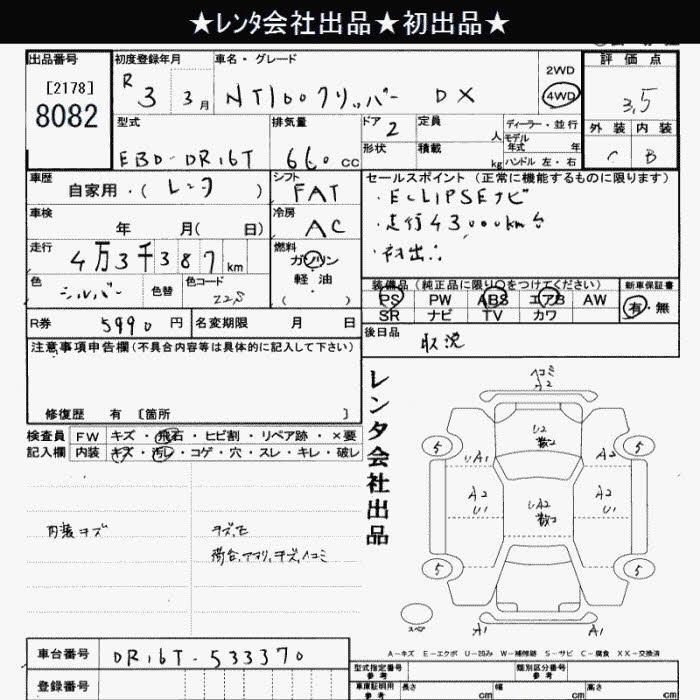 ★ﾚﾝﾀ会社出品★初出品★
出品番号 初度登録年月 車名・グレード 2WD 4WD 評価点
[2178]
8082
R 3 3月 NT100クリッパー DX 3.5
型式 排気量 ドア 2 定員 人 ディーラー・並行 外装 内装
モデル年式 年
EBD-DR16T 660 cc 形状 積載 kg ハンドル 左・右 C B
車歴 自家用・( レンタ ) シフト FAT セールスポイント (正常に機能するものに限ります)
・ECLIPSEナビ
車検 年 月( 日) 冷房 AC ・走行43000km台
走行 4万3千387km 燃料 ガソリン 軽油 ( ) ・初出品
色 シルバー 色替 色コード
装備品 (純正品に限り○をつけてください) 新車保証書
PS PW ABS エアB AW 有・無
SR ナビ TV カワ
R券 5990円 名変期限 月 日 後日品 取説
注意事項申告欄(不具合内容等は具体的に記入して下さい)
修復歴 有 〔箇所 〕
レンタ会社出品
検査員 FW キズ・飛石・ヒビ割・リペア跡・×要
記入欄 内装 キズ・汚レ・コゲ・穴・スレ・キレ・破レ
内装キズ
荷台,アオリ,キズ,ヘコミ
ヘコミ
A2
U2
A1 A1
5 5
A2 UA2 A2
U1 U1
5 5
スペア
A1 A1
A-キズ E-エクボ U-凹み W-補修跡 S-サビ C-腐食 XX-交換済
車台番号 DR16T-533370
登録番号
型式指定番号 参考 類別区分番号 参考
車庫証明用 参考 長さ cm 幅 cm 高さ cm